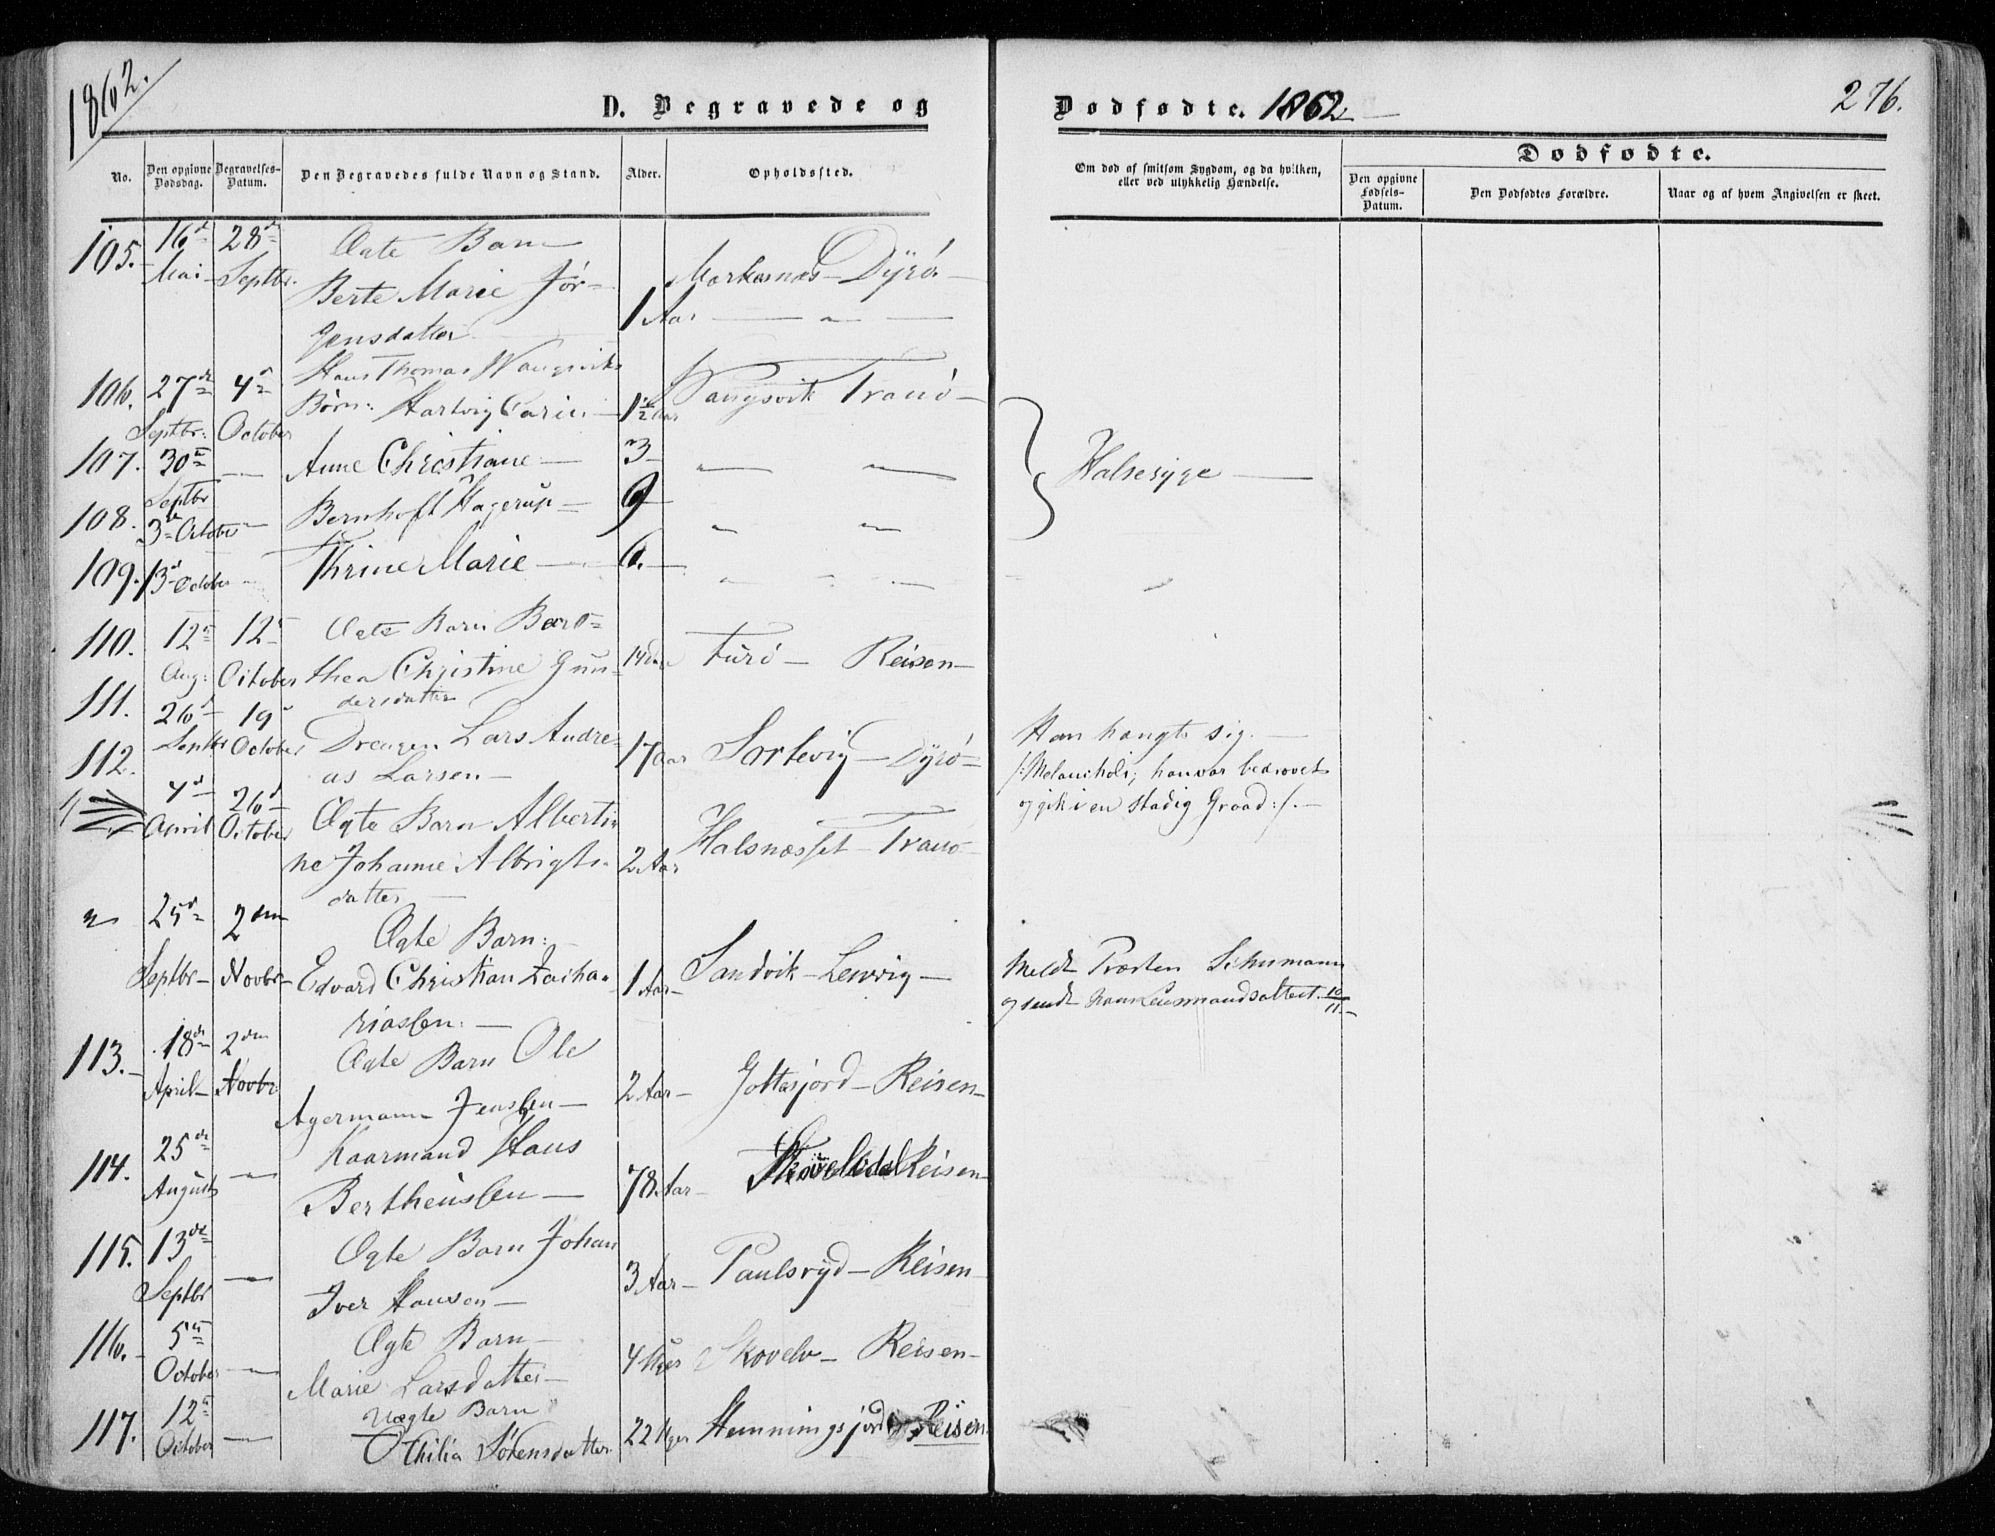 1862.
D. Begravede og
Dødfødte. 1862
276.
No.
Den opgivne Dødsdag.
Begravelses-Datum.
Den Begravedes fulde Navn og Stand.
Alder.
Opholdssted.
Om død af smitsom Sygdom, og da hvilken, eller ved ulykkelig Hændelse.
Dødfødte.
Den opgivne Fødsels-Datum.
Den Dødfødtes Forældre.
Naar og af hvem Angivelsen er skeet.
105. 16d Mai 28d Septbr. Ægte Barn
Berte Marie Jør-
gensdatter 1 Aar Markenæs Dyrö
106. 27de Septbr: 4de October Hans Thomas Wangsviks
Børn: Hartvig Carin 1½ Aar Vangsvik Tranö
107. 30te Septbr — Anne Christiane — 3 — " "
108. 3de October — Bernhoft Hagerup — 9 — " "
Halsesyge —
109. 13d October — Thrine Marie — 6. — " "
110. 12te Aug: 12te October Ægte Barn Berö-
thea Christine Gun-
dersdatter 14 Furö — Reisen —
111. 26d Septbr 19 October Drengen Lars Andre-
as Larsen — 17 Aar Sörlevig — Dyrö
Han hængte sig. —
/: Melancholi; han var bedrøvet
og gik i en stadig Graad :/. —
112. 4d April 26d October Ægte Barn Albertin
ne Johanne Albrigts-
datter — 2 Aar Halsnæsset Tranö
25d Septbr — 2den Novbr — Ægte Barn:
Edvard Christian Zacha-
riassen: — 1 Aar — Sandvik — Lenvig —
Meldt Præsten Schumann
og sendt ham Lensmandsattest. 10/11 —
113. 18de April — 2den Novbr: Ægte Barn Ole
Agermann Jenssen — 2 Aar — Gottesjord — Reisen —
114. 25de August — Kaarmand Hans
Bertheussen — 78 Aar — Reisen —
115. 13de Septbr — Ægte Barn Johan
Iver Hansen — 3 Aar — Paulsryd — Reisen
116. 5te October — Ægte Barn —
Marie Larsdatter — 4 Uger Skovelv — Reisen —
117. 12te October — Uægte Barn
Othilia Sörensdatter. 22 Uger Hemningsjord Reisen.